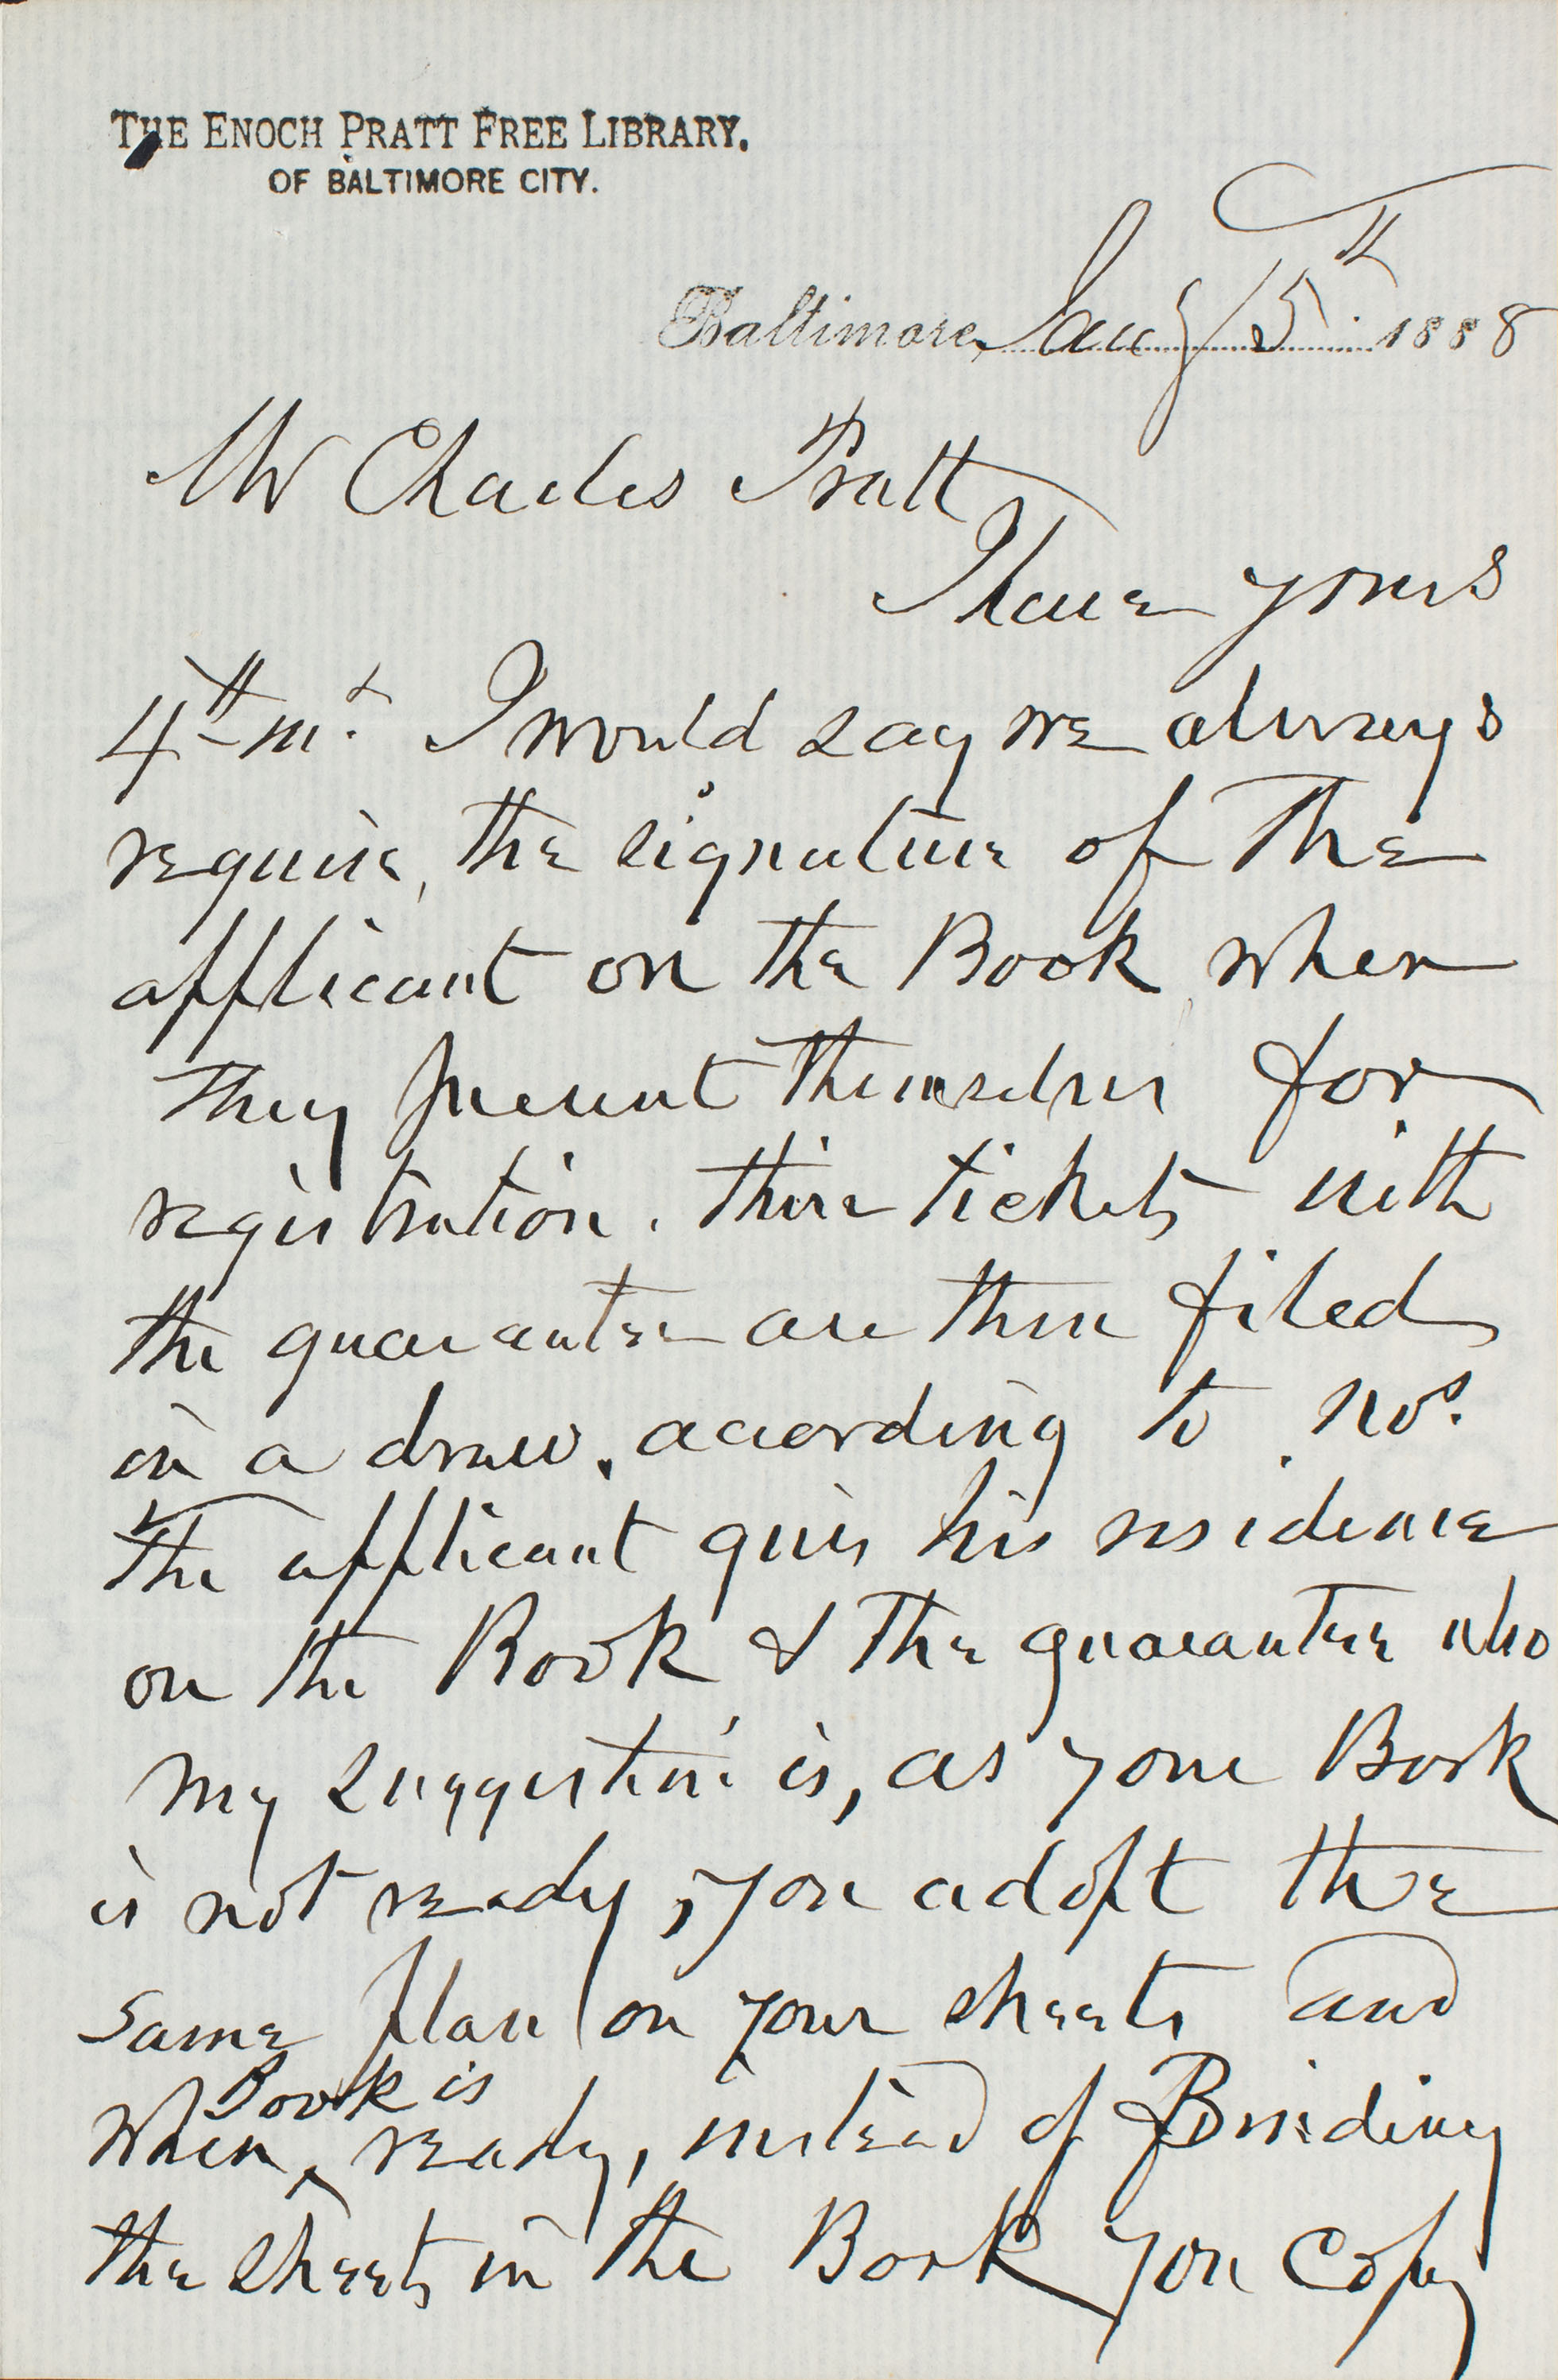 THE ENOCH PRATT FREE LIBRARY.
OF BALTIMORE CITY.
Baltimore, Jany 5th 1888
Mr Charles Pratt
I have yours
4th inst. I would say we always
require, the signature of the
applicant on the Book when
they present themselves for
registration. their tickets with
the guarantee are then filed
in a draw, according to nos.
The applicant gives his residence
on the Book & the guarantee who
my suggestion is, as your Book
is not ready, you adopt the
same plan on your sheets and
Book is
When ^ ready, instead of Binding
the sheets in the Book you copy